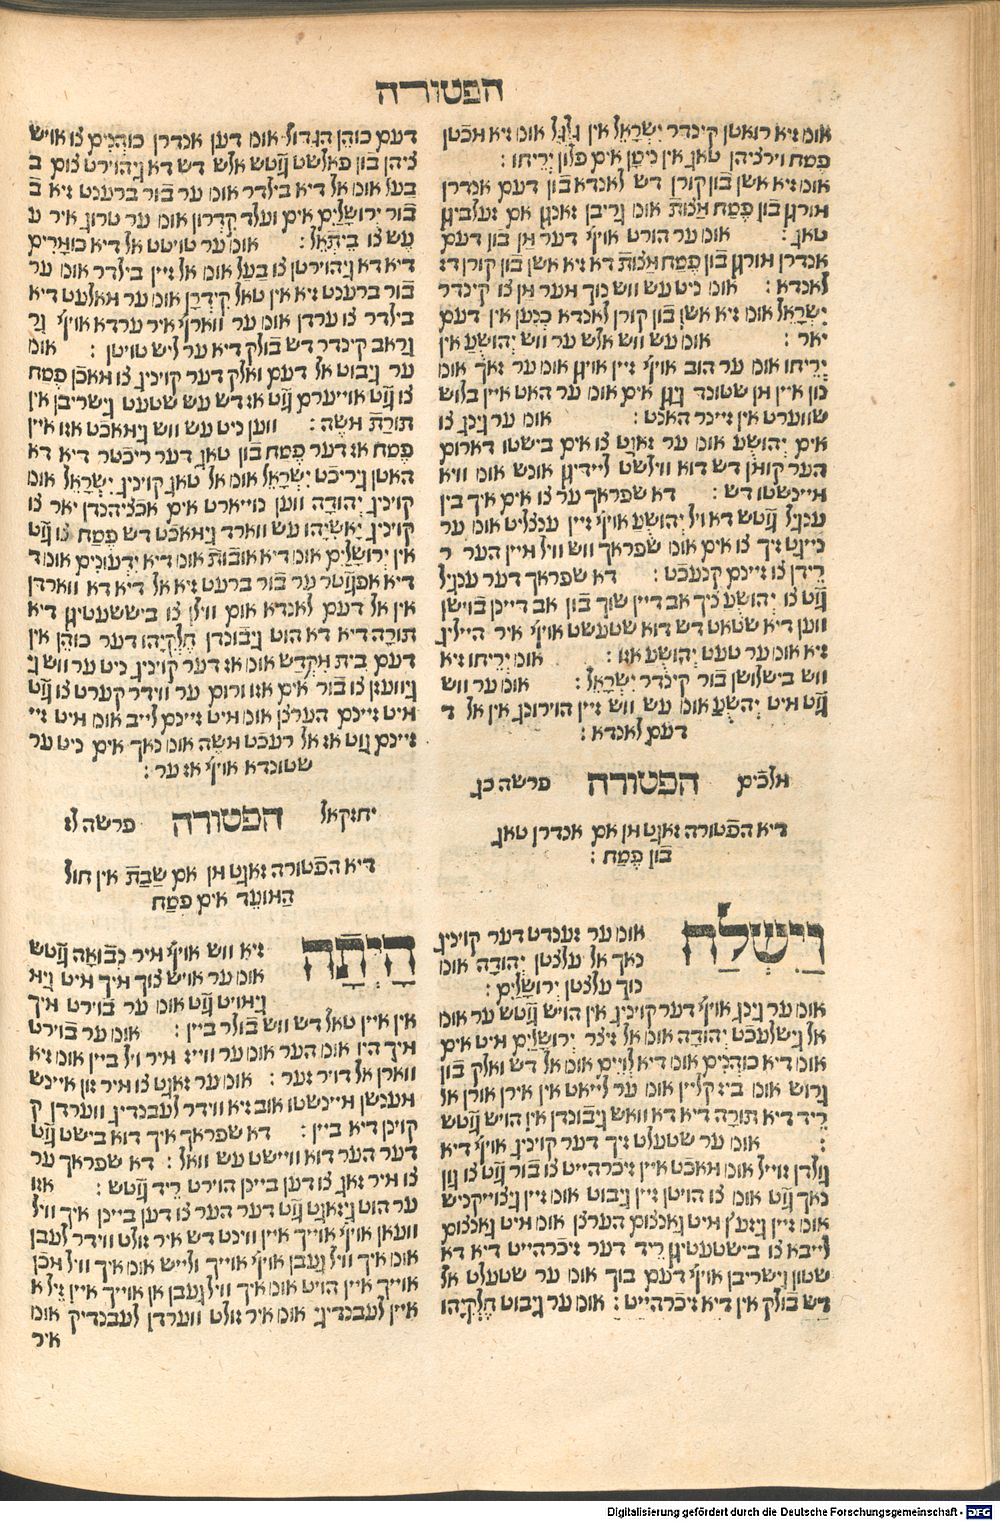 הפטורה
אומ זיא רואטן קינדר יִשְׂרָאֵל אין גִלְגָל אומ זיא מכֿטן
פֶסַח וירציהן טאג אין ניסָן אים פלון יְרֵיחוֹ :
אומ זיא אשן בֿון קורן דש לאנדא בֿון דעם אנדרן
מורגן בֿון פֶּסַח מַצוֹת אומ גריבן זאנגן אם זעלביגן
טאג : אומ ער הורט אויף דער מן בֿון דעם
אנדרן מורגן בֿון פֶּסַח מַצוֹת דא זיא אשן בֿון קורן דז
לאנדא : אומ ניט עש ווש נוך מער מן צו קינדר
יִשְׂרָאֵל אומ זיא אשן בֿון קורן לאנדא כְּנַעַן אין דעם
יאר : אומ עש ווש אלש ער ווש יְהוֹשֻעַ אין
יְרֵיחוֹ אומ ער הוב אויף זיין אויגן אומ ער זאך אומ
נון איין מן שטונד גיגן אים אומ ער האט איין בלוש
שווערט אין זיינר האנט : אומ ער גינג צו
אים יְהוֹשֻעַ אומ ער זאגט צו אים בישטו דארום
הער קומן דש דוא ווילשט ליידיגן אונש אומ וויא
מיינשטו דש : דא שפראך ער צו אים איך בין
ענגיל גׇֿטש דא ויל יְהוֹשֻעַ אויף זיין ענצליט אומ ער
נייגט זיך צו אים אומ שפראך ווש וויל מיין הער ר
רידן צו זיינם קנעכֿט : דא שפראך דער ענגיל
גׇֿט צו יְהוֹשֻעַ ציך אב דיין שוך בֿון אב דיינן בֿוישן
ווען דיא שטאט דש דוא שטעשט אויף איר היילינג
זיא אומ ער טעט יְהוֹשֻעַ אזו : אומ יְרֵיחוֹ זיא
ווש בישלושן בֿור קינדר יִשְׂרָאֵל : אומ ער ווש
גׇֿט מיט יְהֹשֻעַ אומ עש ווש זיין הוירונג אין אל ד
דעם לאנדא :
מלכֿים הפטורה פרשה כג
דיא הפֿטורה זאגט מן אם אנדרן טאג
בֿון פֶּסַח :
וַיִּשְלַח אומ ער זענדט דער קויניג
נאך אל עלצטן יְהוּדָה אומ
נוך עלצטן יְרוּשָלַיִם :
אומ ער גינג אויף דער קויניג אין הויש גׇֿטש ער אומ
אל גישלעכֿט יְהוּדָה אומ אל זיצר יְרוּשָלַיִם מיט אים
אומ דיא כּוֹהֲנִים אומ דיא לְוִיִּים אומ אל דש ואלק בֿון
גרוש אומ ביז קליין אומ ער לייאט אין אירן אורן אל
ריד דיא תּוֹרָה דיא דא וואש גיבֿונדן אין הויש גׇֿטש
: אומ ער שטעלט זיך דער קויניג אויף דיא
גולדן זוייל אומ מאכֿט איין זיכֿרהייט צו בֿור גׇֿט צו גון
נאך גׇֿט אומ צו הויטן זיין גיבוט אומ זיין גיצוייקניש
אומ זיין גיזעץ מיט גאנצום הערצן אומ מיט גאנצום
לייבא צו בישטעטיגן ריד דער זיכֿרהייט דיא דא
שטון גישריבן אויף דעם בוך אומ ער שטעלט אל
דש בֿולק אין דיא זיכֿרהייט : אומ ער גיבוט חִלְקִיָּהוּ
דעם כוהן הגדול אומ דען אנדרן כוהֲנִים צו אויש
ציהן בֿון פאלשט גׇֿטש אלש דש דא גיהוירט צום ב
בַעַל אומ אל דיא בילדר אומ ער בֿור ברענט זיא בֿ
בֿור יְרוּשָלַיִם אים ועלד קִדְרוֹן אומ ער טרוג איר ע
עֶש צו בֵיתְאֵל : אומ ער טויטט אל דיא כומָרִים
דיא דא גיהוירטן צו בַעַל אומ אל זיין בילדר אומ ער
בֿור ברענט זיא אין טאל קִידְרוֹן אומ ער מאלעט דיא
בילדר צו ערדן אומ ער ווארף איר ערדא אויף גר
גראב קינדר דש בֿולק דיא ער ליש טויטן : אומ
ער גיבוט אל דעם ואלק דער קויניג צו מאכֿן פֶּסַח
צו גׇֿט אוייערם גׇֿט אז דש עש שטעט גישריבן אין
תּוֹרַת מֹשֶה : ווען ניט עש ווש גימאכֿט אזו איין
פֶּסַח אז דער פֶּסַח בֿון טאג דער ריכֿטר דיא דא
האטן גיריכֿט יִשְׂרָאֵל אומ אל טאג קויניג יִשְׂרָאֵל אומ
קויניג יְהוּדָה ווען נוייארט אים אכֿציהנדן יאר צו
קויניג יָאשִׁיָּהוּ עש ווארד גימאכֿט דש פֶּסַח צו גׇֿט
אין יְרוּשָלַיִם אומ דיא אוֹבוֹת אומ דיא יִדְעוֹנִים אומ ד
דיא אפגׇֿטר ער בֿור ברעט זיא אל דיא דא ווארדן
אין אל דעם לאנדא אום ווילן צו בישטעטיגן דיא
תּוֹרָה דיא דא הוט גיבֿונדן חִלְקִיָּהוּ דער כּוֹהֵן אין
דעם בית מִקְדָש אומ אז דער קויניג ניט ער ווש גי
גיוועזן צו בֿור אים אזו ורום ער ווידר קערט צו גׇֿט
מיט זיינם הערצן אומ מיט זיינם לייב אומ מיט זיי
זיינם גוט אז אל רעכֿט מֹשֶה אומ נאך אים ניט ער
שטונדא אויף אז ער :
יחזקאל הפטורה פרשה לז
דיא הפֿטורה זאגט מן אם שַבַּת אין חול
הַמוֹעֵד אים פֶּסַח
הָיְתָה זיא ווש אויף מיר נְבוּאָה גׇֿטש
אומ ער אויש צוך מיך מיט גימ
גימויט גׇֿט אומ ער בֿוירט מיך
אין איין טאל דש ווש בֿולר ביין : אומ ער בֿוירט
מיך הין אומ הער אומ ער ווייז מיר ויל ביין אומ זיא
ווארן אל דויר זער : אומ ער זאגט צו מיר זון איינש
מענשן מיינשטו אוב זיא ווידר לעבנדיג ווערדן ק
קוינן דיא ביין : דא שפראך איך דוא בישט גׇֿט
דער הער דוא ווייסט עש וואל : דא שפראך ער
צו מיר זאג צו דען ביינן הוירט ריד גׇֿטש : אזו
ער הוט גיזאגט גׇֿט דער הער צו דען ביינן איך וויל
וועאן אויף אוייך איין ווינט דש איר זולט ווידר לעבן
אומ איך וויל געבן אויף אוייך ולייש אומ איך וויל מכֿן
אוייך איין הויט אומ איך וויל געבן אן אוייך איין זיל א
איין לעבנדיגי אומ איר זולט ווערדן לעבנדיק אומ
איר
Digitalisierung gefördert durch die Deutsche Forschungsgemeinschaft - DFG